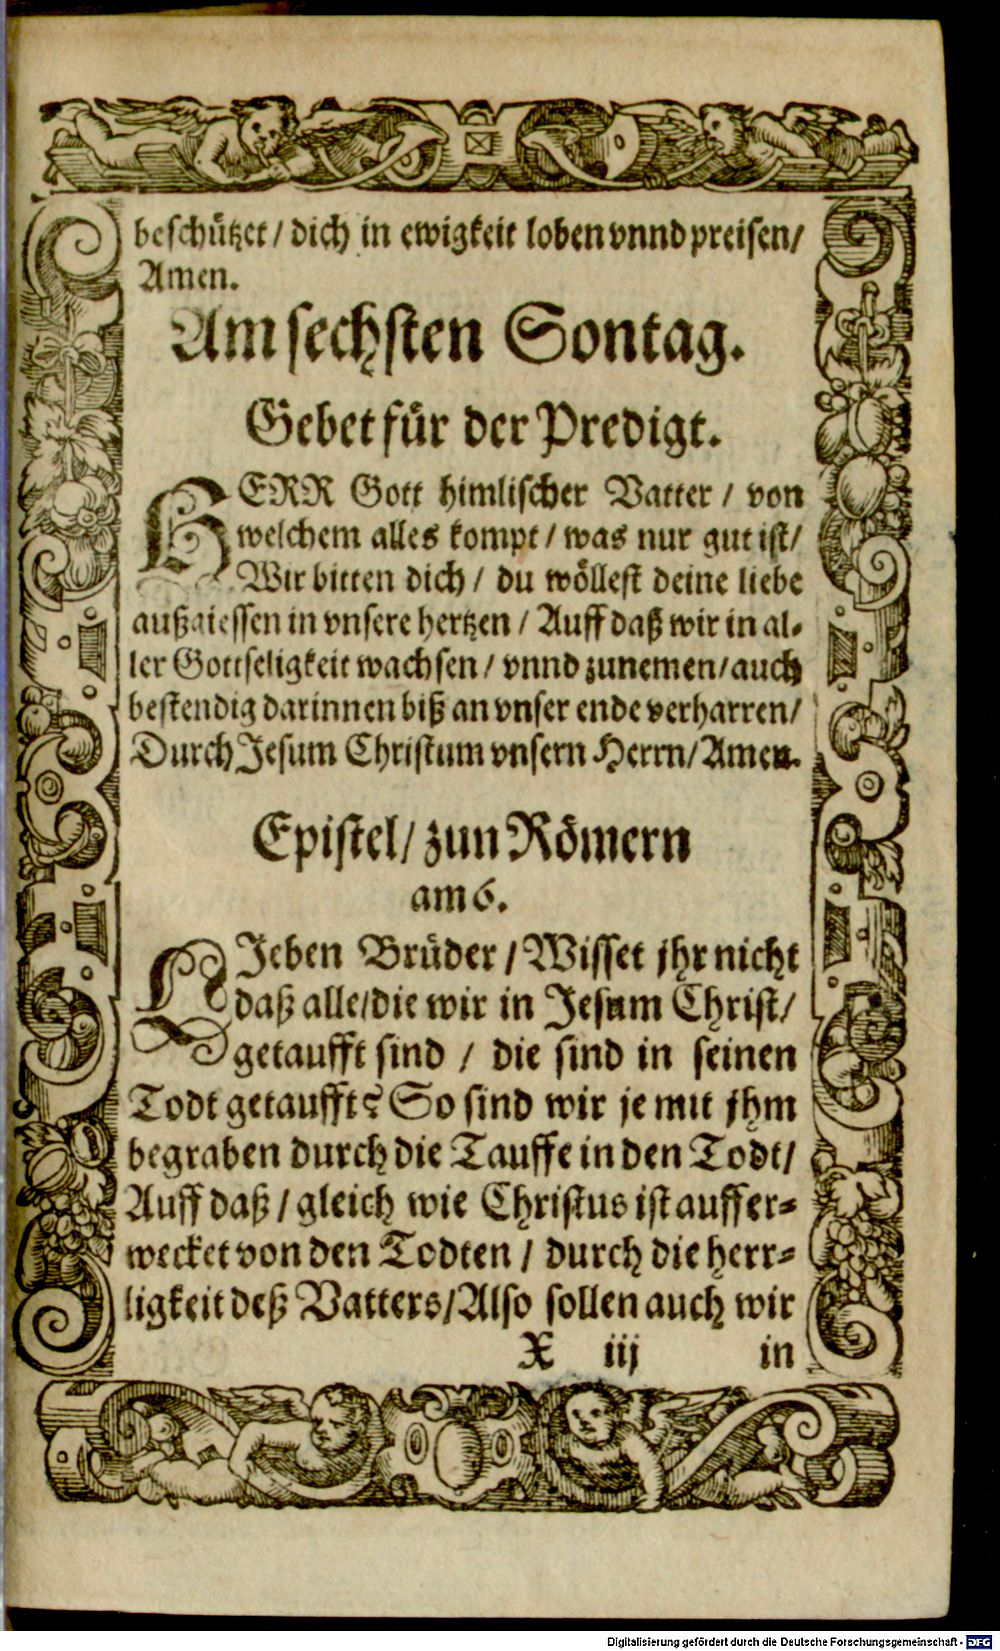 beschützet / dich in ewigkeit loben vnnd preisen /
Amen.
Am sechsten Sontag.
Gebet für der Predigt.
HERR Gott himlischer Vatter / von
welchem alles kompt / was nur gut ist /
Wir bitten dich / du wöllest deine liebe
außgiessen in vnsere hertzen / Auff daß wir in al-
ler Gottseligkeit wachsen / vnnd zunemen / auch
bestendig darinnen biß an vnser ende verharren /
Durch Jesum Christum vnsern Herrn / Amen.
Epistel / zun Römern
am 6.
LIeben Brüder / Wisset jhr nicht
daß alle / die wir in Jesum Christ /
getaufft sind / die sind in seinen
Todt getaufft? So sind wir je mit jhm
begraben durch die Tauffe in den Todt /
Auff daß / gleich wie Christus ist auffer-
wecket von den Todten / durch die herr-
ligkeit deß Vatters / Also sollen auch wir
X iij in
Digitalisierung gefördert durch die Deutsche Forschungsgemeinschaft - DFG